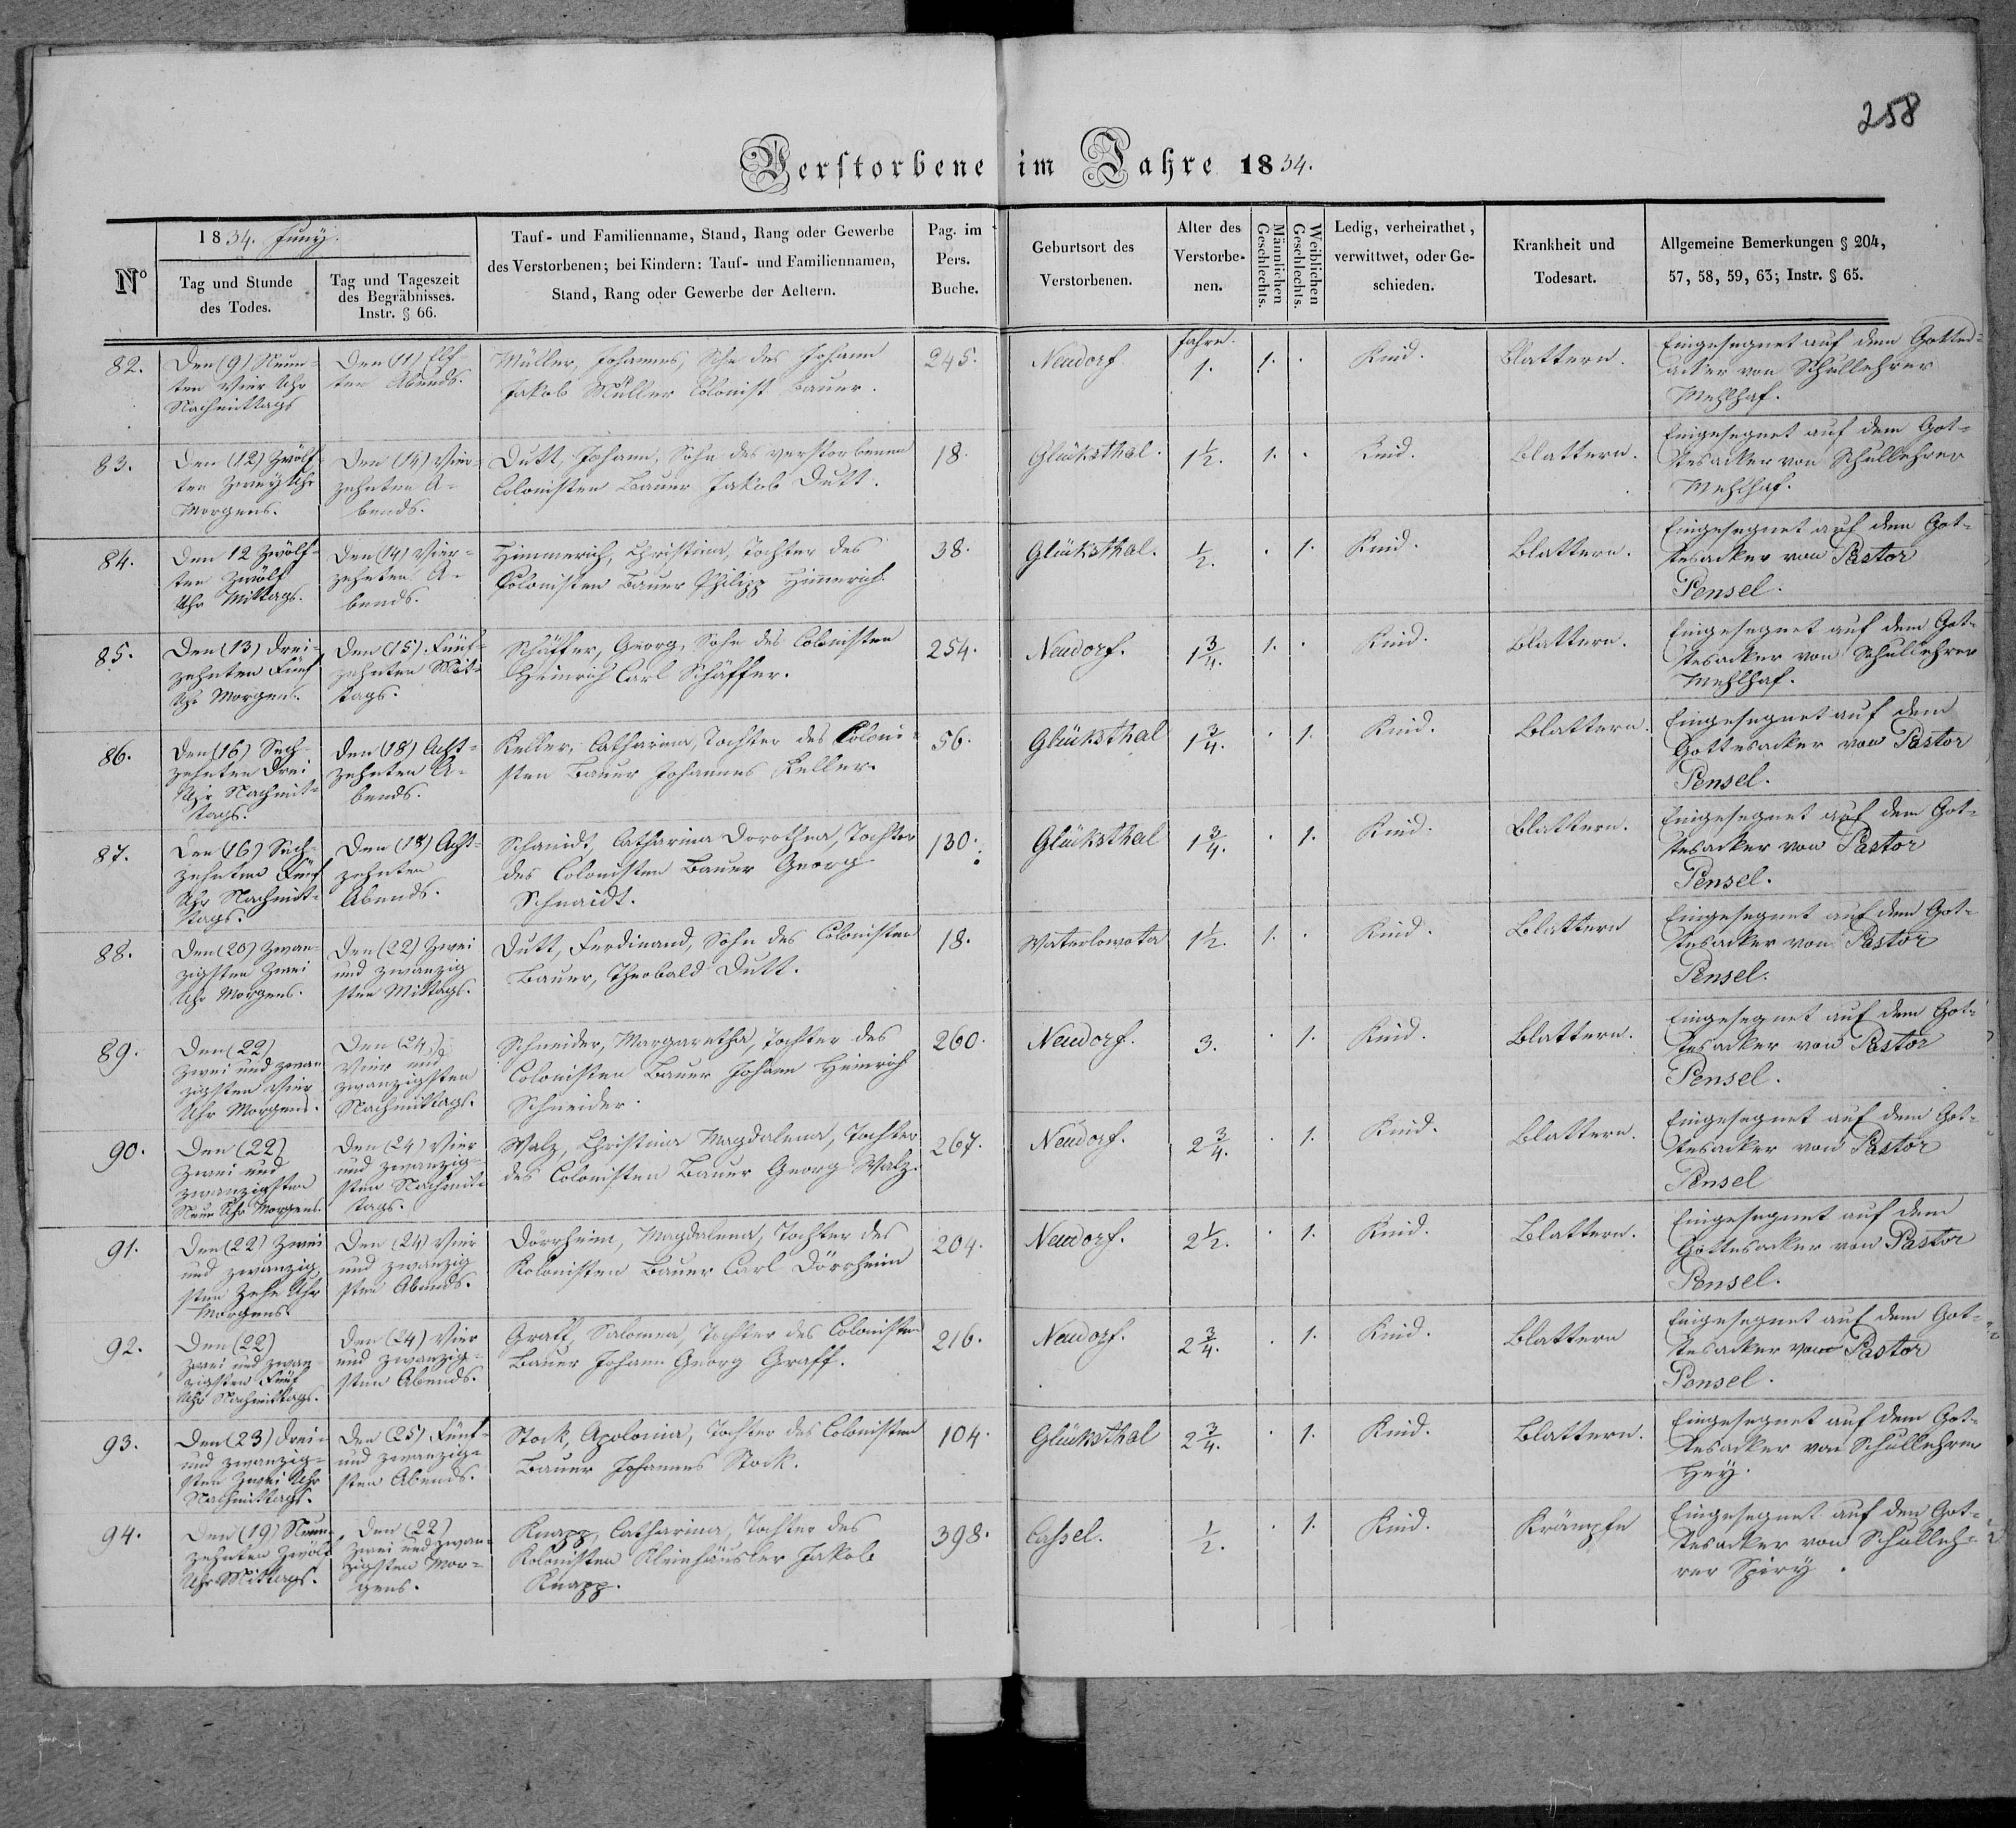 258
Verstorbene im Jahre 1834.
No
1834. Juny.
Tag und Stunde
des Todes.
Tag und Tageszeit
des Begräbnisses.
Instr. § 66.
Tauf- und Familienname, Stand, Rang oder Gewerbe
des Verstorbenen; bei Kindern: Tauf- und Familiennamen,
Stand, Rang oder Gewerbe der Aeltern.
Pag. im
Pers.
Buche.
Geburtsort des
Verstorbenen.
Alter des
Verstorbe-
nen.
Männlichen
Geschlechts.
Weiblichen
Geschlechts.
Ledig, verheirathet,
verwittwet, oder Ge-
schieden.
Krankheit und
Todesart.
Allgemeine Bemerkungen § 204,
57, 58, 59, 63; Instr. § 65.
82.
Den (9) Neun-
ten Vier Uhr
Nachmittags
Den (11) Elf-
ten Abends.
Müller, Johannes, Sohn des Johann
Jakob Müller Colonist Bauer.
245.
Neudorf
Jahre.
1.
1.
Kind.
Blattern.
Eingesegnet auf dem Gottes-
acker von Schullehrer
Mehlhaf.
83.
Den (12) Zwölf-
ten Zwey Uhr
Morgens.
Den (14) Vier-
zehnten A-
bends.
Dutt, Johann, Sohn des verstorbenen
Colonisten Bauer Jakob Dutt.
18.
Glücksthal.
1 1/2.
1.
Kind.
Blattern.
Eingesegnet auf dem Got-
tesacker von Schullehrer
Mehlhaf.
84.
Den 12 Zwölf-
ten Zwölf
Uhr Mittags.
Den (14) Vier-
zehnten A-
bends.
Himmerich, Christina, Tochter des
Colonisten Bauer Philipp Himmerich.
38.
Glücksthal.
1/2.
1.
Kind.
Blattern.
Eingesegnet auf dem Got-
tesacker von Pastor
Pensel.
85.
Den (13) Drei-
zehnten Fünf
Uhr Morgens.
Den (15). Fünf-
zehnten Mit-
tags.
Schäffer, Georg, Sohn des Colonisten
Heinrich Carl Schäffer.
254.
Neudorf.
1 3/4.
1.
Kind.
Blattern.
Eingesegnet auf dem Got-
tesacker von Schullehrer
Mehlhaf.
86.
Den (16) Sech-
zehnten Drei
Uhr Nachmit-
tags.
Den (18) Acht-
zehnten A-
bends.
Keller, Catharina, Tochter des Coloni-
sten Bauer Johannes Keller.
56.
Glücksthal
1 3/4.
1.
Kind.
Blattern.
Eingesegnet auf dem
Gottesacker von Pastor
Pensel.
87.
Den (16) Sech-
zehnten Fünf
Uhr Nachmit-
tags.
Den (18) Acht-
zehnten
Abends.
Schmidt, Catharina Dorothea, Tochter
des Colonisten Bauer Georg
Schmidt.
130.
Glücksthal
1 3/4.
1.
Kind.
Blattern.
Eingesegnet auf dem Got-
tesacker von Pastor
Pensel.
88.
Den (20) Zwan-
zigsten Zwei
Uhr Morgens.
Den (22) Zwei
und zwanzig
sten Mittags.
Dutt, Ferdinand, Sohn des Colonisten
Bauer, Theobald Dutt.
18.
Waterlowota
1 1/2.
1.
Kind.
Blattern
Eingesegnet auf dem Got-
tesacker von Pastor
Pensel.
89.
Den (22)
Zwei und zwan
zigsten Vier
Uhr Morgens.
Den (24)
Vier und
zwanzigsten
Nachmittags.
Schneider, Margaretha, Tochter des
Colonisten Bauer Johann Heinrich
Schneider.
260.
Neudorf.
3.
1.
Kind.
Blattern.
Eingesegnet auf dem Got-
tesacker von Pastor
Pensel.
90.
Den (22)
Zwei und
zwanzigsten
Neun Uhr Morgens.
Den (24) Vier
und zwanzig-
sten Nachmit-
tags.
Walz, Christina Magdalena, Tochter
des Colonisten Bauer Georg Walz.
267.
Neudorf.
2 3/4.
1.
Kind.
Blattern.
Eingesegnet auf dem Got-
tesacker von Pastor
Pensel
91.
Den (22) Zwei
und zwanzig
sten Zehn Uhr
Morgens.
Den (24) Vier
und zwanzig
sten Abends.
Dörrheim, Magdalena, Tochter des
Kolonisten Bauer Carl Dörrheim
204.
Neudorf.
2 1/2.
1.
Kind.
Blattern.
Eingesegnet auf dem
Gottesacker von Pastor
Pensel.
92.
Den (22)
Zwei und zwan
zigsten Fünf
Uhr Nachmittags.
Den (24) Vier
und zwanzig-
sten Abends.
Graff, Salomea, Tochter des Colonisten
Bauer Johann Georg Graff.
216.
Neudorf.
2 3/4.
1.
Kind.
Blattern
Eingesegnet auf dem Got-
tesacker vom Pastor
Pensel.
93.
Den (23) Drei-
und zwanzig-
sten Zwei Uhr
Nachmittags.
Den (25) Fünf-
und zwanzig-
sten Abends.
Stock, Apolonia, Tochter des Colonisten
Bauer Johannes Stock.
104.
Glücksthal
2 3/4.
1.
Kind.
Blattern.
Eingesegnet auf dem Got-
tesacker von Schullehrer
Hey.
94.
Den (19) Neun-
zehnten Zwölf
Uhr Mittags.
Den (22)
Zwei und zwan-
zigsten Mor-
gens.
Knapp, Catharina, Tochter des
Kolonisten Kleinhäusler Jakob
Knapp.
398.
Cassel.
1/2.
1.
Kind.
Krämpfe
Eingesegnet auf den Got-
tesacker von Schulleh-
rer Spiry.